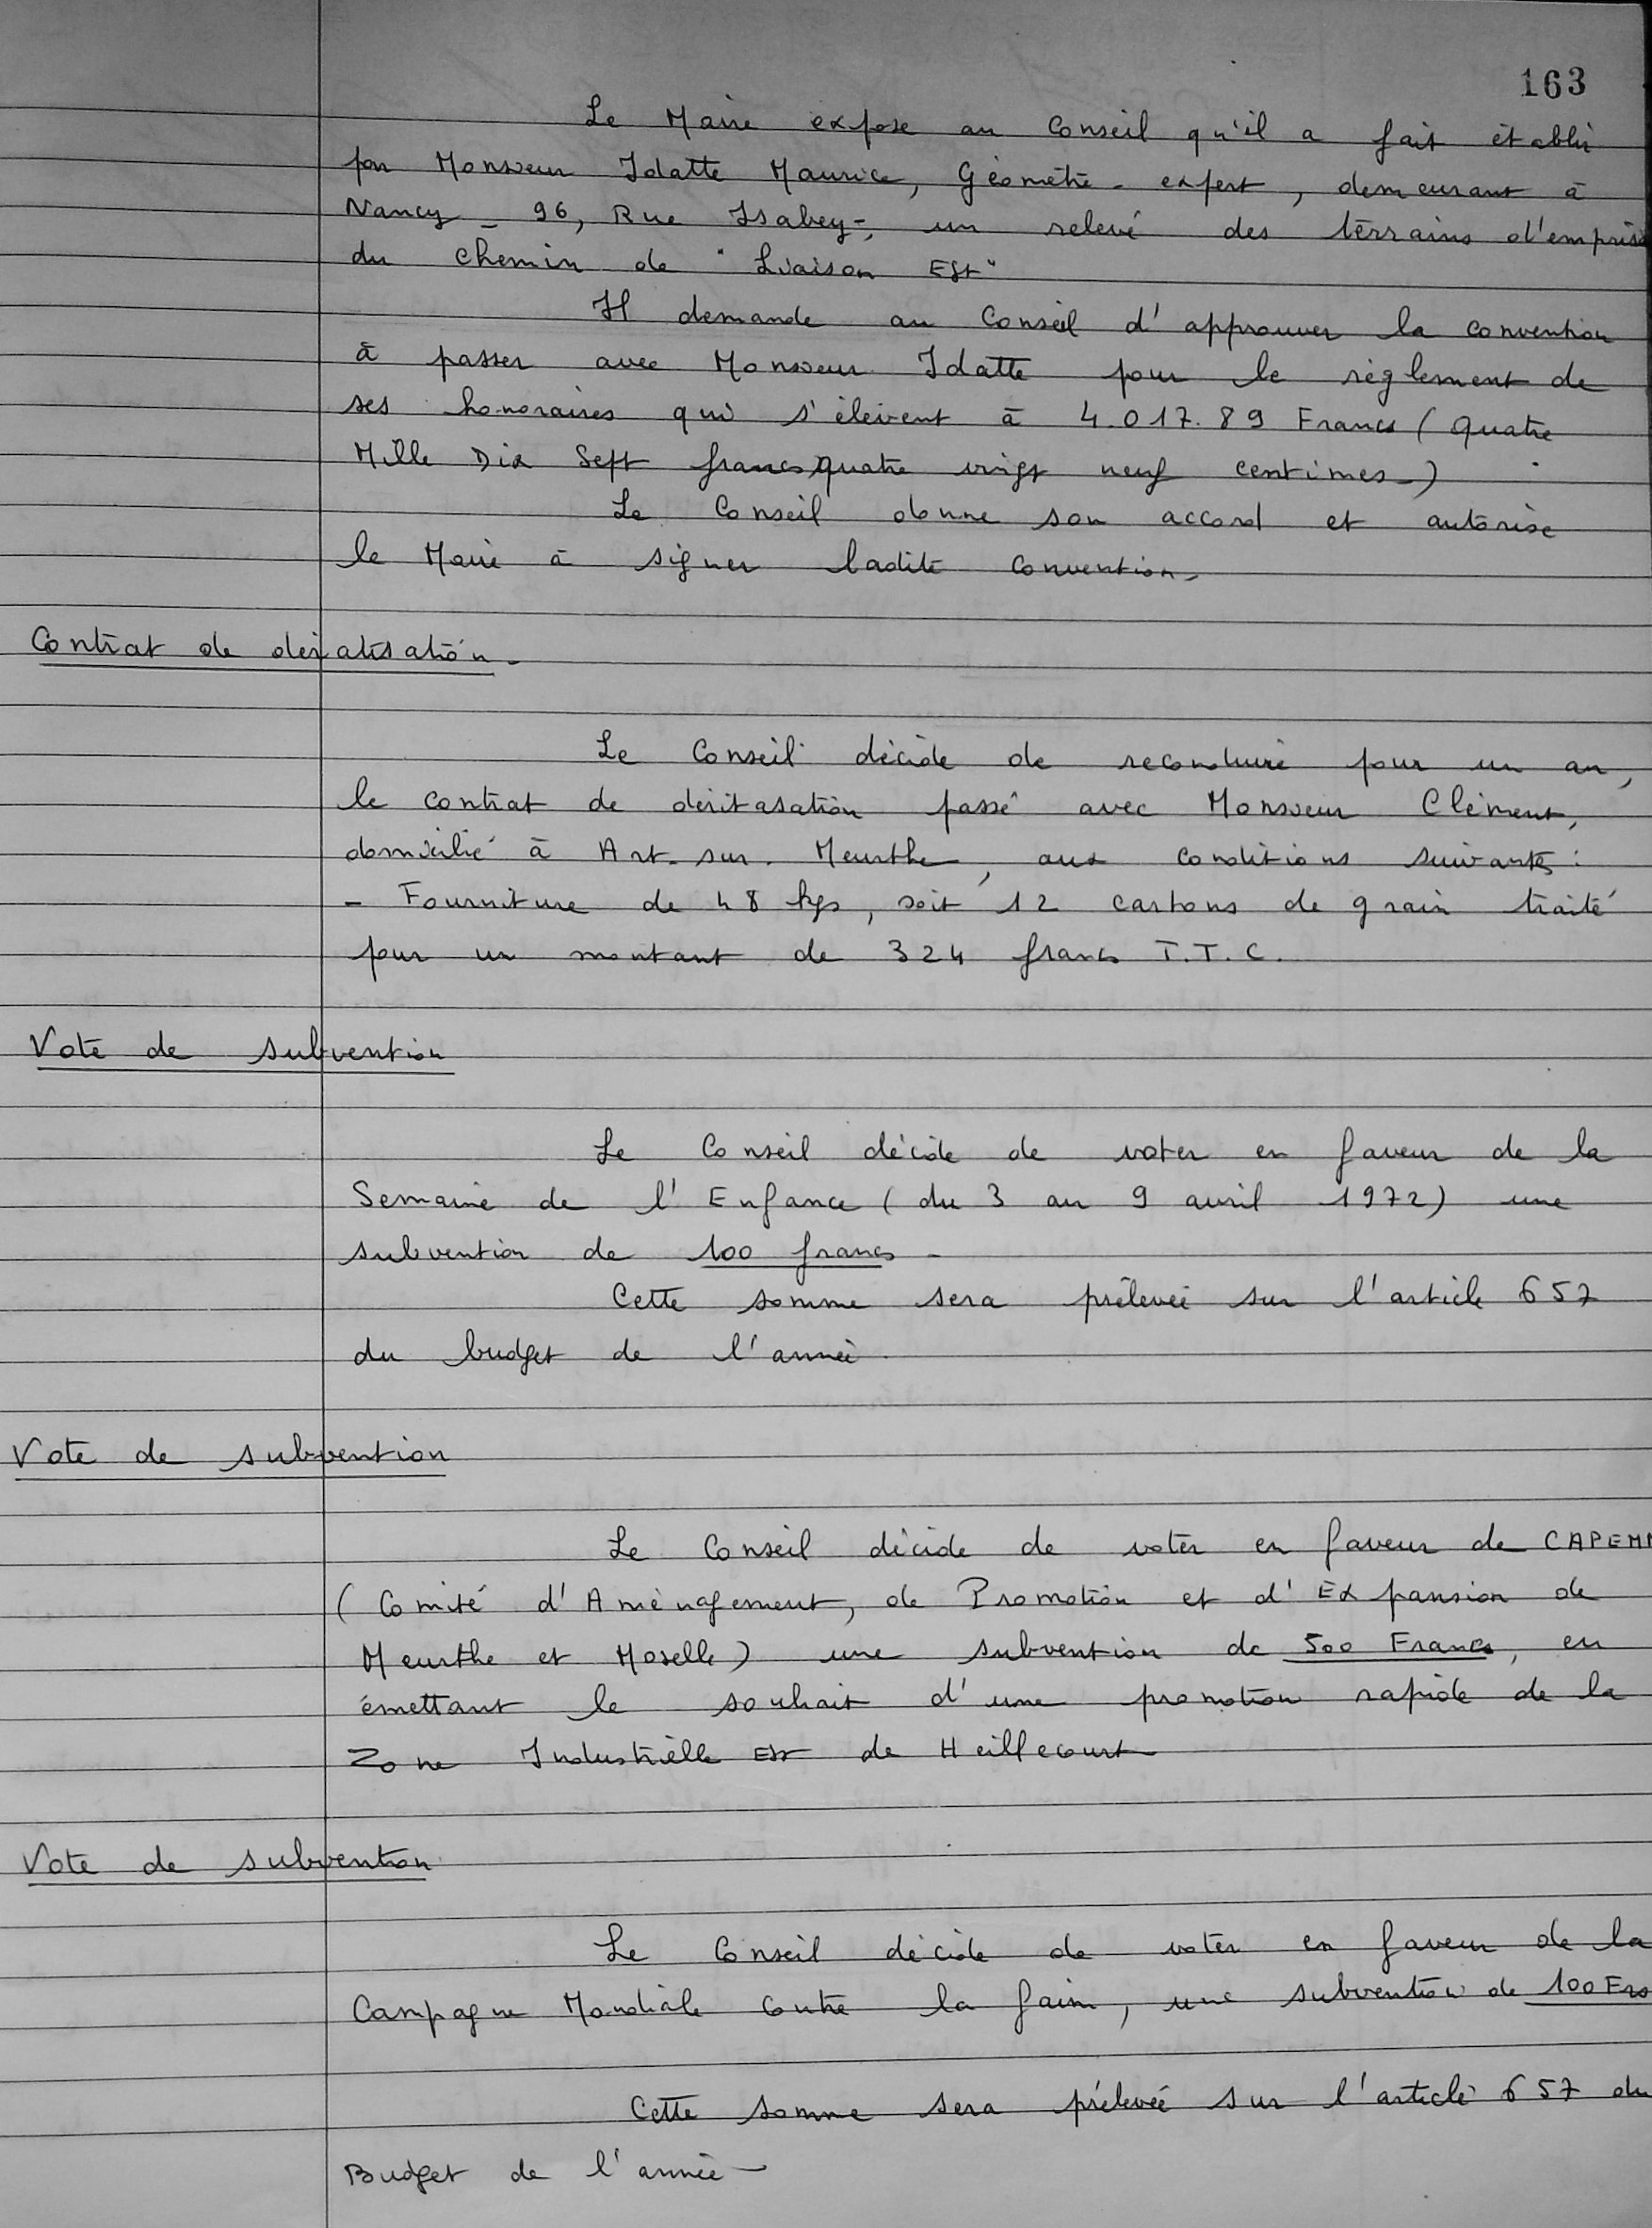 163
Le Maire expose au Conseil qu'il a fait établir
par Monsieur Idatte Maurice, Géomètre-expert, demeurant à
Nancy - 96, Rue Isabey-, un relevé des terrains d'emprise
du chemin de "Liaison Est"
Il demande au Conseil d'approuver la convention
à passer avec Monsieur Idatte pour le règlement de
ses honoraires qui s'élèvent à 4.017.89 Francs (Quatre
Mille Dix Sept francs quatre vingt neuf centimes-)
Le Conseil donne son accord et autorise
le Maire à signer ladite Convention-
Contrat de dératisation-
Le Conseil décide de reconduire pour un an,
le contrat de déritasation passé avec Monsieur Clément,
domicilié à Art-sur-Meurthe, aux conditions suivantes :
- Fourniture de 48 kgs, soit 12 cartons de grain traité
pour un montant de 324 francs T.T.C.
Vote de subvention
Le Conseil décide de voter en faveur de la
Semaine de l'Enfance (du 3 au 9 avril 1972) une
subvention de 100 francs -
Cette somme sera prélevée sur l'article 657
du budget de l'année.
Vote de subvention
Le Conseil décide de voter en faveur de CAPEMM
(Comité d'Aménagement, de Promotion et d'Expansion de
Meurthe et Moselle) une subvention de 500 Francs, en
émettant le souhait d'une promotion rapide de la
Zone Industrielle Est de Heillecourt-
Vote de subvention
Le Conseil décide de voter en faveur de la
Campagne Mondiale Contre la faim, une subvention de 100 Frs
Cette somme sera prélevée sur l'article 657 du
Budget de l'année-